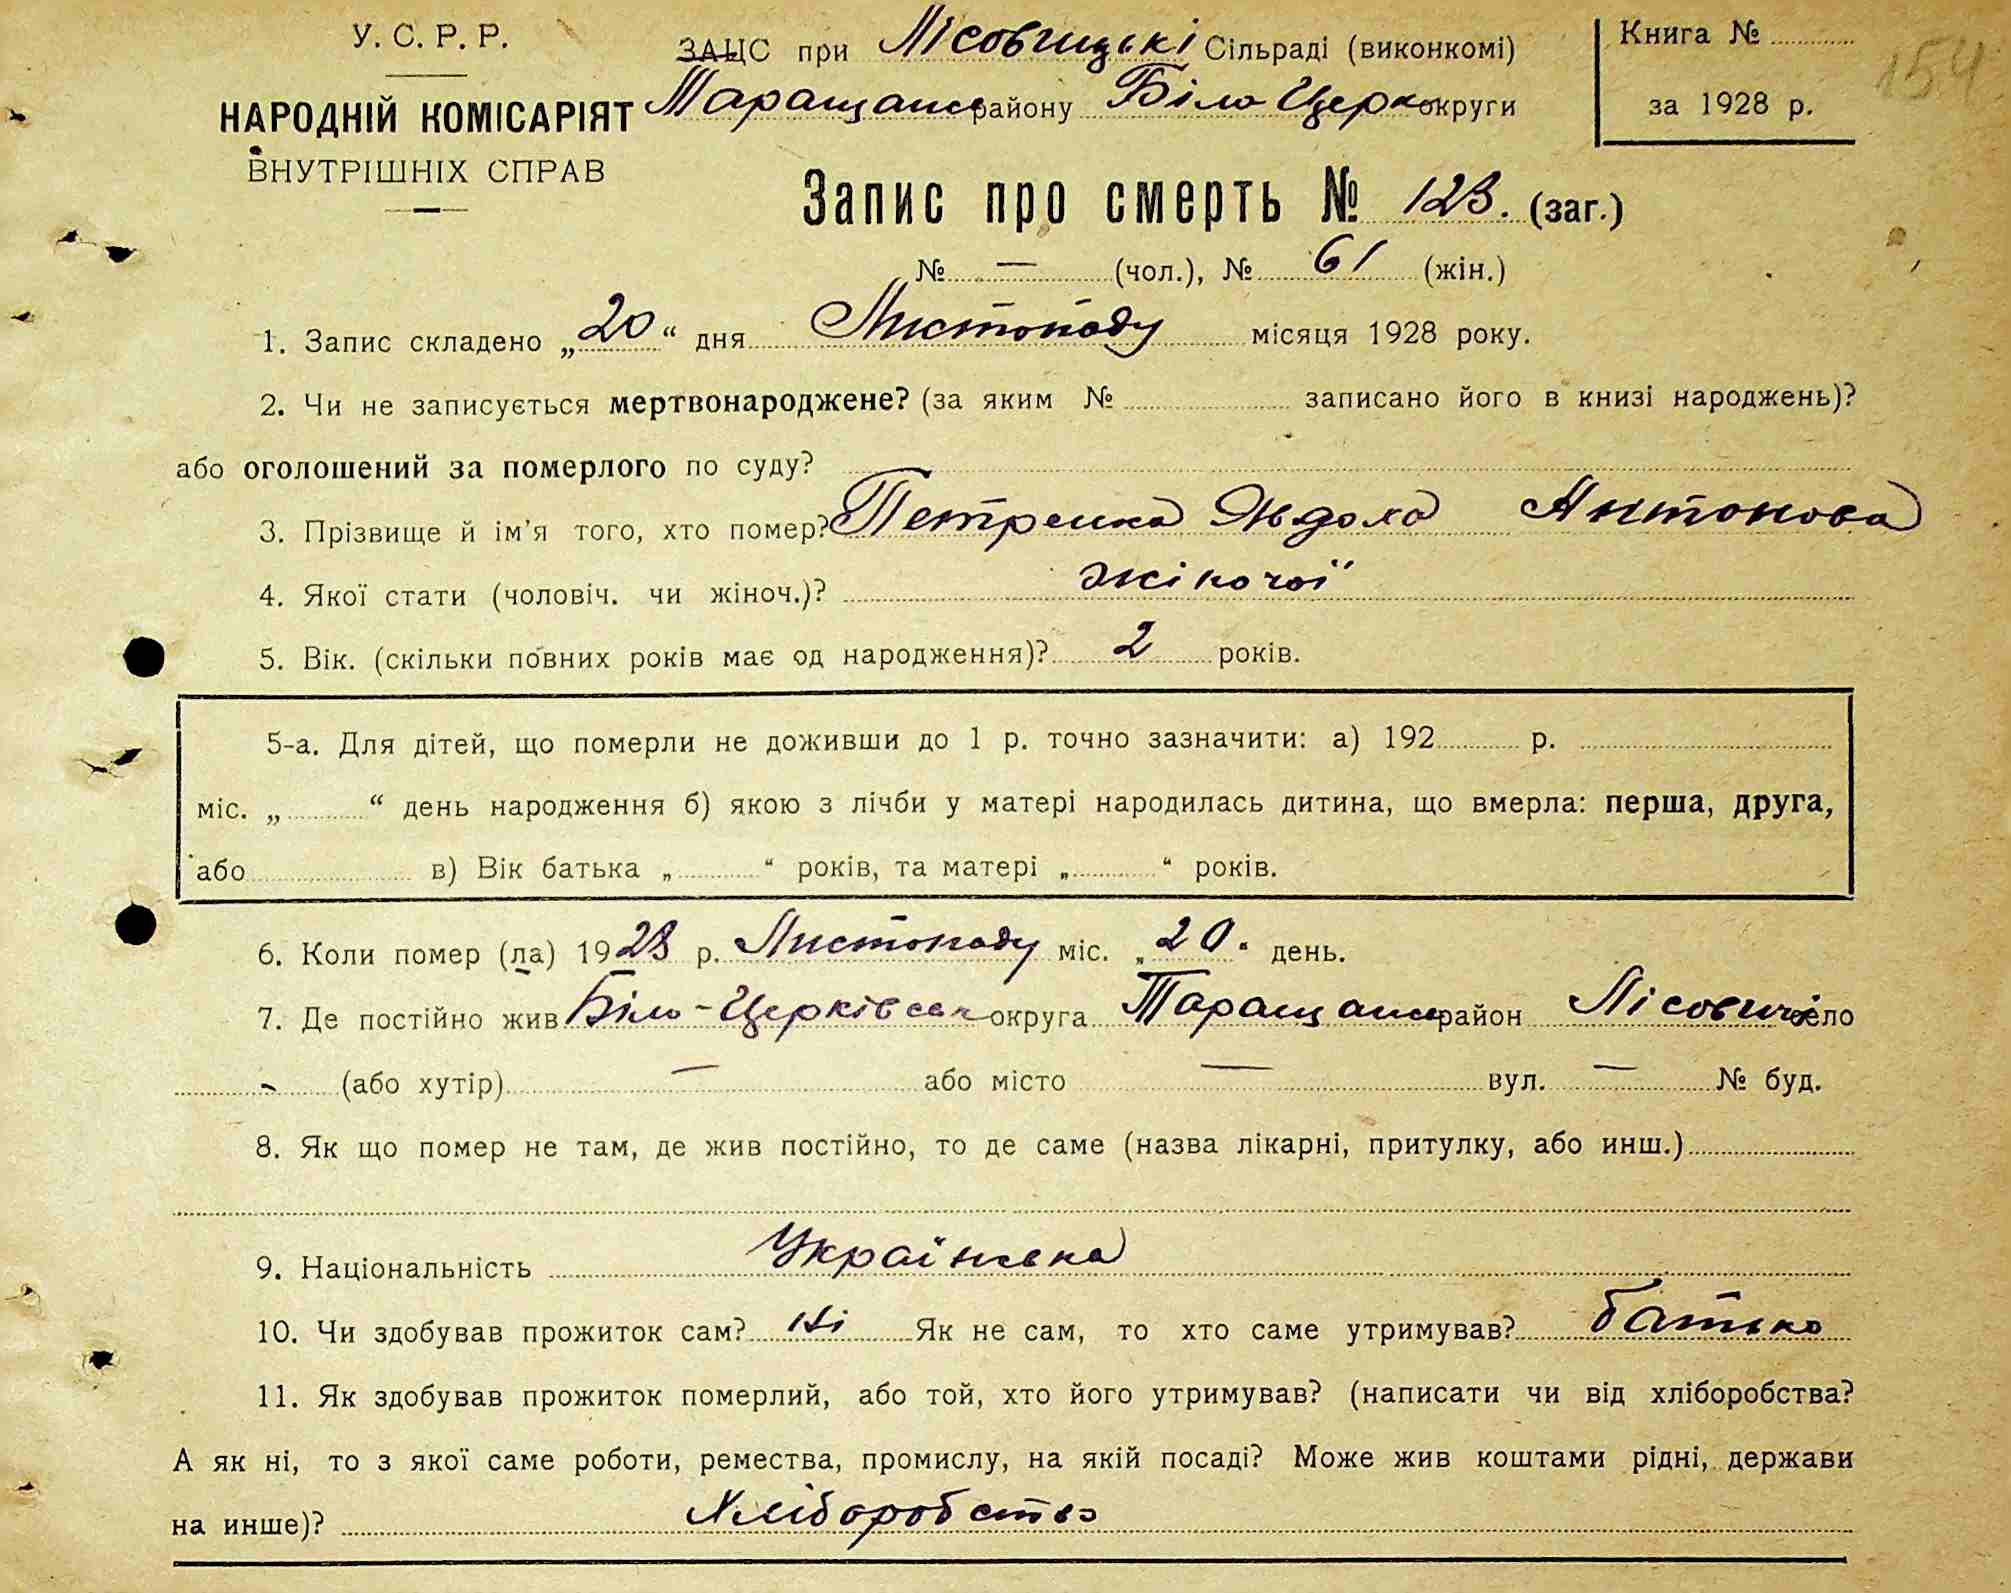 У. С. Р. Р.
ЗАЦС при Лісовицькі Сільраді (виконкомі)
Книга №
154
НАРОДНІЙ КОМІСАРІЯТ
Таращанс району Біло Церк округи
за 1928 р.
ВНУТРІШНІХ СПРАВ
Запис про смерть № 123. (заг.)
№ — (чол.), № 61 (жін.)
1. Запис складено „20“ дня Листопаду місяця 1928 року.
2. Чи не записується мертвонароджене? (за яким № записано його в книзі народжень)?
або оголошений за померлого по суду?
3. Прізвище й ім'я того, хто помер? Петренка Явдоха Антонова
4. Якої стати (чоловіч. чи жіноч.)? жіночої
5. Вік. (скільки повних років має од народження)? 2 років.
5-а. Для дітей, що померли не доживши до 1 р. точно зазначити: а) 192 р.
міс. „ “ день народження б) якою з лічби у матері народилась дитина, що вмерла: перша, друга,
або в) Вік батька „ “ років, та матері „ “ років.
6. Коли помер (ла) 1928 р. Листопаду міс. „20“ день.
7. Де постійно жив Біло-Церківськ округа Таращанс район Лісовичі село
- (або хутір) — або місто — вул. — № буд.
8. Як що помер не там, де жив постійно, то де саме (назва лікарні, притулку, або инш.)
9. Національність Українська
10. Чи здобував прожиток сам? Ні Як не сам, то хто саме утримував? батько
11. Як здобував прожиток померлий, або той, хто його утримував? (написати чи від хліборобства?
А як ні, то з якої саме роботи, ремества, промислу, на якій посаді? Може жив коштами рідні, держави
на инше)? Хліборобство